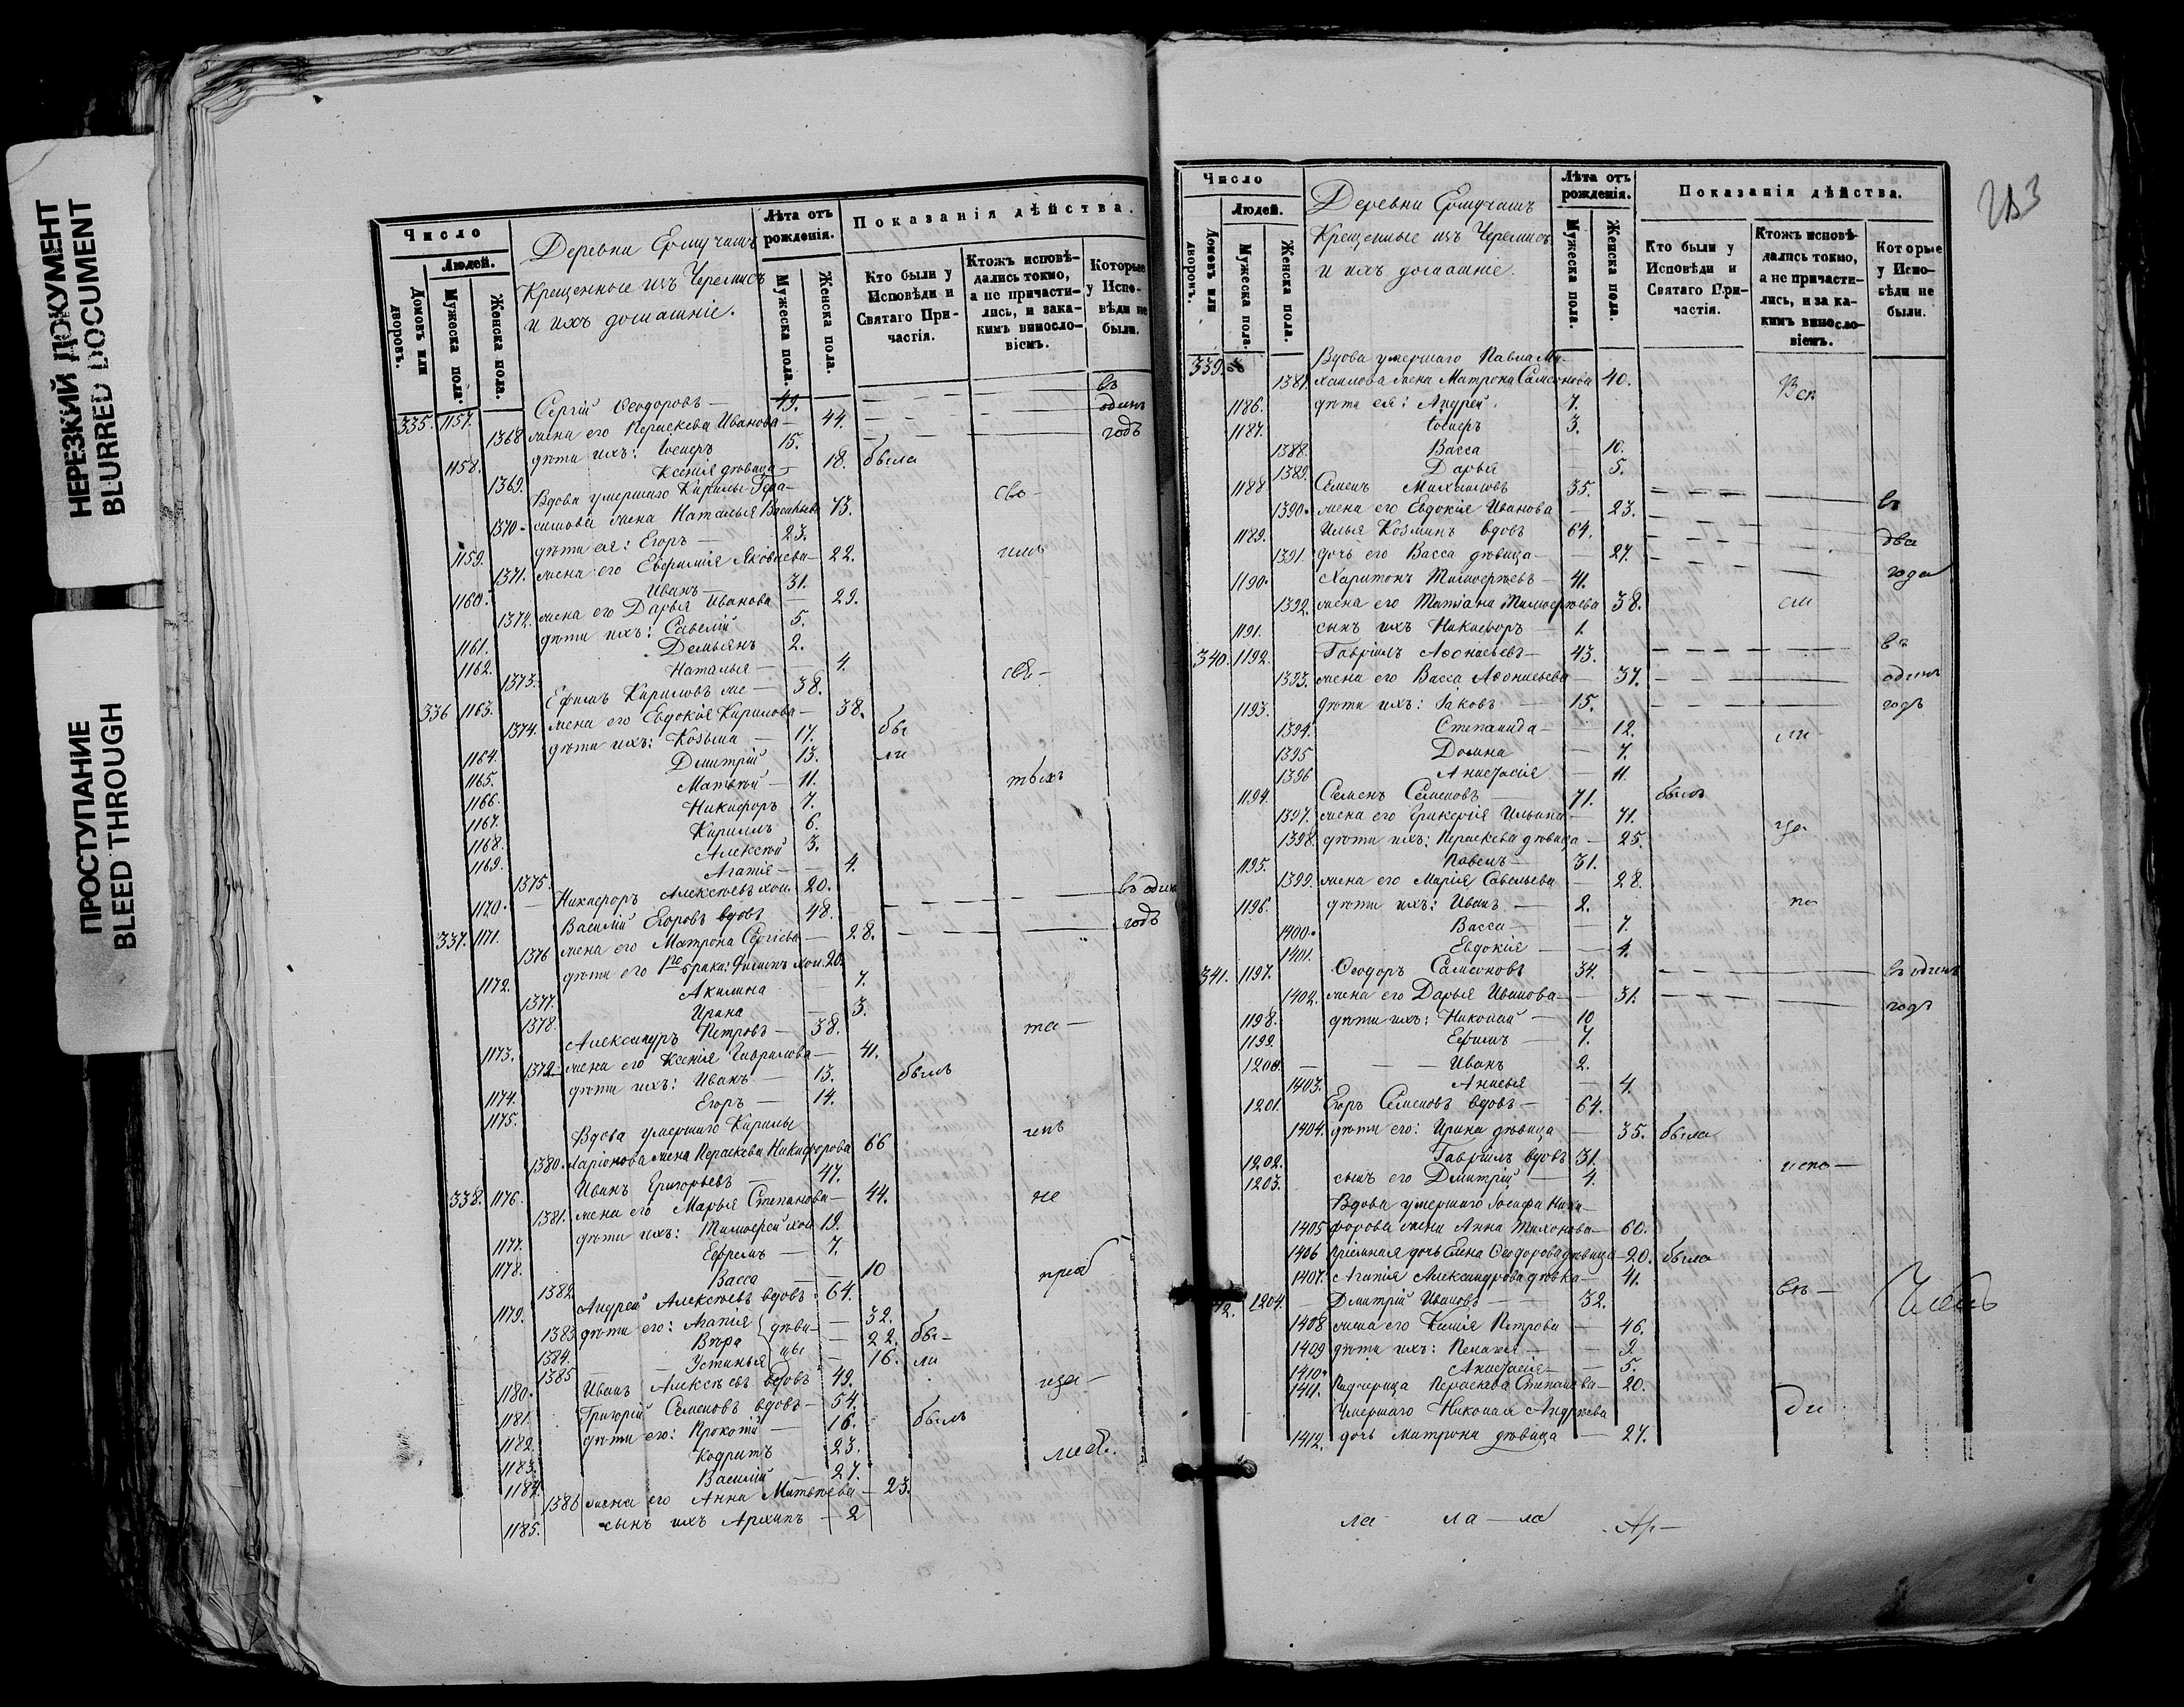 НЕРЕЗКИЙ ДОКУМЕНТ
BLURRED DOCUMENT
ПРОСТУПАНИЕ
BLEED THROUGH
Число
Людей.
Домовъ или дворовъ.
Мужеска пола.
Женска пола.
Деревни Ермучашъ
Крещенные изъ Черемисъ
и ихъ домашніе.
Лѣта отъ рожденія.
Мужеска пола.
Женска пола.
Показанія дѣйства.
Кто были у Исповѣди и Святаго При-частія.
Ктожъ исповѣ-дались токмо, а не причасти-лись, и зака-кимъ винослo-віемъ.
Которые у Испо-вѣди не были.
335. 1157. Сергій Ѳеодоровъ — 49. въ
1368 жена его Параскева Иванова — 44. одинъ
1158. дѣти ихъ: Іосифъ 15. годъ
1369. Ксенія дѣвица — 18. была
Вдова умершаго Кирилы Гера-
1370. симова жена Наталья Васильева 73. сво-
1159. дѣти ея: Егоръ — 23.
1371. жена его Евфимія Яковлева — 22. имъ
1160. Иванъ — 31.
1372. жена его Дарья Иванова — 29.
1161. дѣти ихъ: Савелій 5.
1162. Демьянъ 2.
1373. Наталья — 4.
336 1163. Ефимъ Кириловъ — 38. свя-
1374. жена его Евдокія Кирилова — 38.
1164. дѣти ихъ: Козьма — 17. бы
1165. Дмитрій 13. ли
1166. Матвѣй — 11. тыхъ
1167. Никифоръ 7.
1168. Кириллъ 6.
1169. Алексѣй 3.
1375. Агапія — 4.
1170. Никифоръ Алексѣевъ хол. 20. въ одинъ
337. 1171. Василій Егоровъ вдовъ 48. годъ
1376 жена его Матрона Сергіева — 28.
1172. дѣти его 1го брака: Филипъ хол. 20.
1377. Акилина 7.
1378. Ирина 3.
1173. Александръ Петровъ — 38. та —
1379. жена его Ксенія Гаврилова — 41.
1174. дѣти ихъ: Иванъ — 13. былъ
1175. Егоръ — 14.
Вдова умершаго Кирилы
1380. Ларіонова жена Параскева Никифорова 66
338. 1176. Иванъ Григорьевъ — 47.
1381. жена его Марья Степанова — 44. не
1177. дѣти ихъ: Тимоѳей хол 19.
1178. Ефремъ — 7.
1382. Васса — 10
1179. Андрей Алексѣевъ вдовъ 64.
1383 дѣти его: Агапія дѣви- — 32.
1384. Вѣра цы — 22. бы-
1385 Устинья — 16. ли
1180. Иванъ Алексѣевъ вдовъ 49.
1181. Григорій Семеновъ вдовъ — 54.
1182. дѣти его: Прокопій — 16. былъ
1183. Кодратъ 23.
1184. Василій — 27.
1386 жена его Анна Матвѣева — 23.
1185. сынъ ихъ Архипъ — 2
Число
Людей.
Домовъ или дворовъ.
Мужеска пола.
Женска пола.
Деревни Ермучашъ
Крещенные изъ Черемисъ
и ихъ домашніе.
Лѣта отъ рожденія.
Мужеска пола.
Женска пола.
Показанія дѣйства.
Кто были у Исповѣди и Святаго При-частія.
Ктожъ исповѣ-дались токмо, а не причасти-лись, и за ка-кимъ винослo-віемъ.
Которые у Испо-вѣди не были.
339. Вдова умершаго Павла Ми-
1387. хаилова жена Матрона Самсонова 40.
1186. дѣти ея: Андрей. 7.
1187. Іосифъ 3.
1388. Васса — 10.
1389. Дарья — 5.
1188 Семенъ Михаиловъ 35.
1390. жена его Евдокія Иванова — 23. въ
1189. Илья Козминъ вдовъ 64.
1391. дочь его Васса дѣвица — 27. два
1190. Харитонъ Тимоѳеевъ — 41. года
1392. жена его Татіана Тимоѳеева 38. ли
1191. сынъ ихъ Никифоръ — 1.
340. 1192. Гавріилъ Аѳонасьевъ — 43. въ
1393. жена его Васса Аѳонасьева — 37. одинъ
1193. дѣти ихъ: Іаковъ — 15. годъ
1394. Степанида — 12.
1395 Домна — 7. ли
1396 Анастасія — 11.
1194. Семенъ Семеновъ — 71. былъ
1397. жена его Гликерія Ильина — 71.
1398. дѣти ихъ: Параскева дѣвица — 25.
1195. Павелъ — 31.
1399. жена его Марія Савельева — 28.
1196. дѣти ихъ: Иванъ — 2. по
1400. Васса — 7.
1401. Евдокія — 4.
341. 1197. Ѳеодоръ Самсоновъ 34. въ одинъ
1402. жена его Дарья Иванова — 31. годъ
1198. дѣти ихъ: Николай — 10
1199. Ефимъ — 7.
1200. Иванъ 2.
1403. Анисья — 4.
1201. Егоръ Семеновъ вдовъ — 64.
1404. дѣти его: Ирина дѣвица — 35. была
1202. Гавріилъ вдовъ 31.
1203. сынъ его Дмитрій — 4. испо —
Вдова умершаго Іосифа Ники-
1405 форова жена Анна Тихонова — 60.
1406 Пріемная дочь Елена Ѳеодорова дѣвица — 20. была
1407. Агапія Александрова дѣвка — 41.
1204. Дмитрій Ивановъ — 32. вѣ —
1408 жена его Ксенія Петрова — 46.
1409 дѣти ихъ: Пелагія — 9.
1410. Анастасія — 5.
1411. Падчерица Параскева Степанова — 20.
Умершаго Николая Андреева
1412. дочь Матрона дѣвица — 27. ди
ла ла — ла